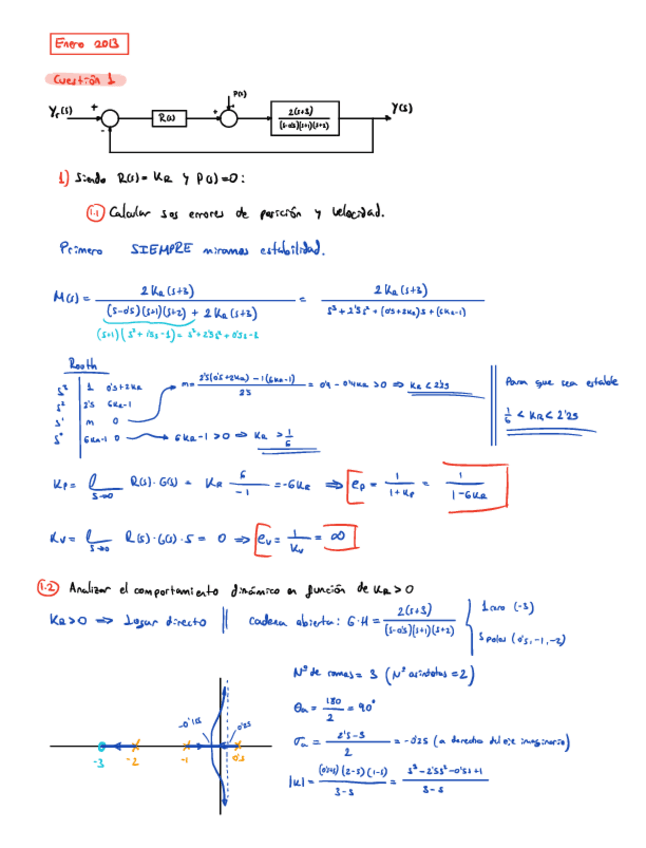 Enero 2013
Cuestión 1
P(s)
Yr(s) + - R(s) + + 2(s+3) / (s-0's)(s+1)(s+2) Y(s)
1) Siendo R(s) = KR y P(s) = 0:
1.1 Calcular sos errores de posición y velocidad.
Primero SIEMPRE miramos estabilidad.
M(s) = 2KR(s+3) / (s-0's)(s+1)(s+2) + 2KR(s+3) = 2KR(s+3) / s³ + 2'5s² + (0's+2KR)s + (6KR-1)
Routh
s³ 1 0's+2KR
s² 2's 6KR-1
s¹ m 0
s⁰ 6KR-1 0 → 6KR-1>0 ⇒ KR > 1/6
Para que sea estable
1/6 < KR < 2'25
Kp = l s→0 R(s)·G(s) = KR 6/-1 = -6KR ⇒ ep = 1/1+Kp = 1/1-6KR
Kv = l s→0 R(s)·G(s)·s = 0 ⇒ ev = 1/Kv = ∞
1.2 Analizar el comportamiento dinámico en función de KR>0
KR>0 ⇒ Lugar directo || cadena abierta: G·H = 2(s+3) / (s-0's)(s+1)(s+2)
1 cero (-3)
3 polos (0's, -1, -2)
Nº de ramas = 3 (Nº asíntotas = 2)
θa = 180/2 = 90°
σa = 2's-3 / 2 = -0'25 (a derecha del eje imaginario)
-3 -2 -1 0's